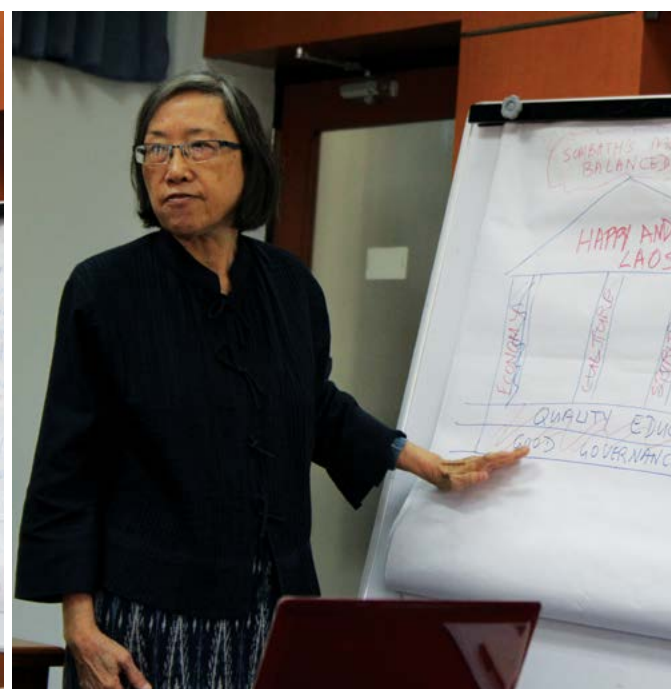 SOMBATH'S
BALANCED
HAPPY AND
LAOS
ECONOMY
CULTURE
QUALITY EDUC
GOOD GOVERNANC